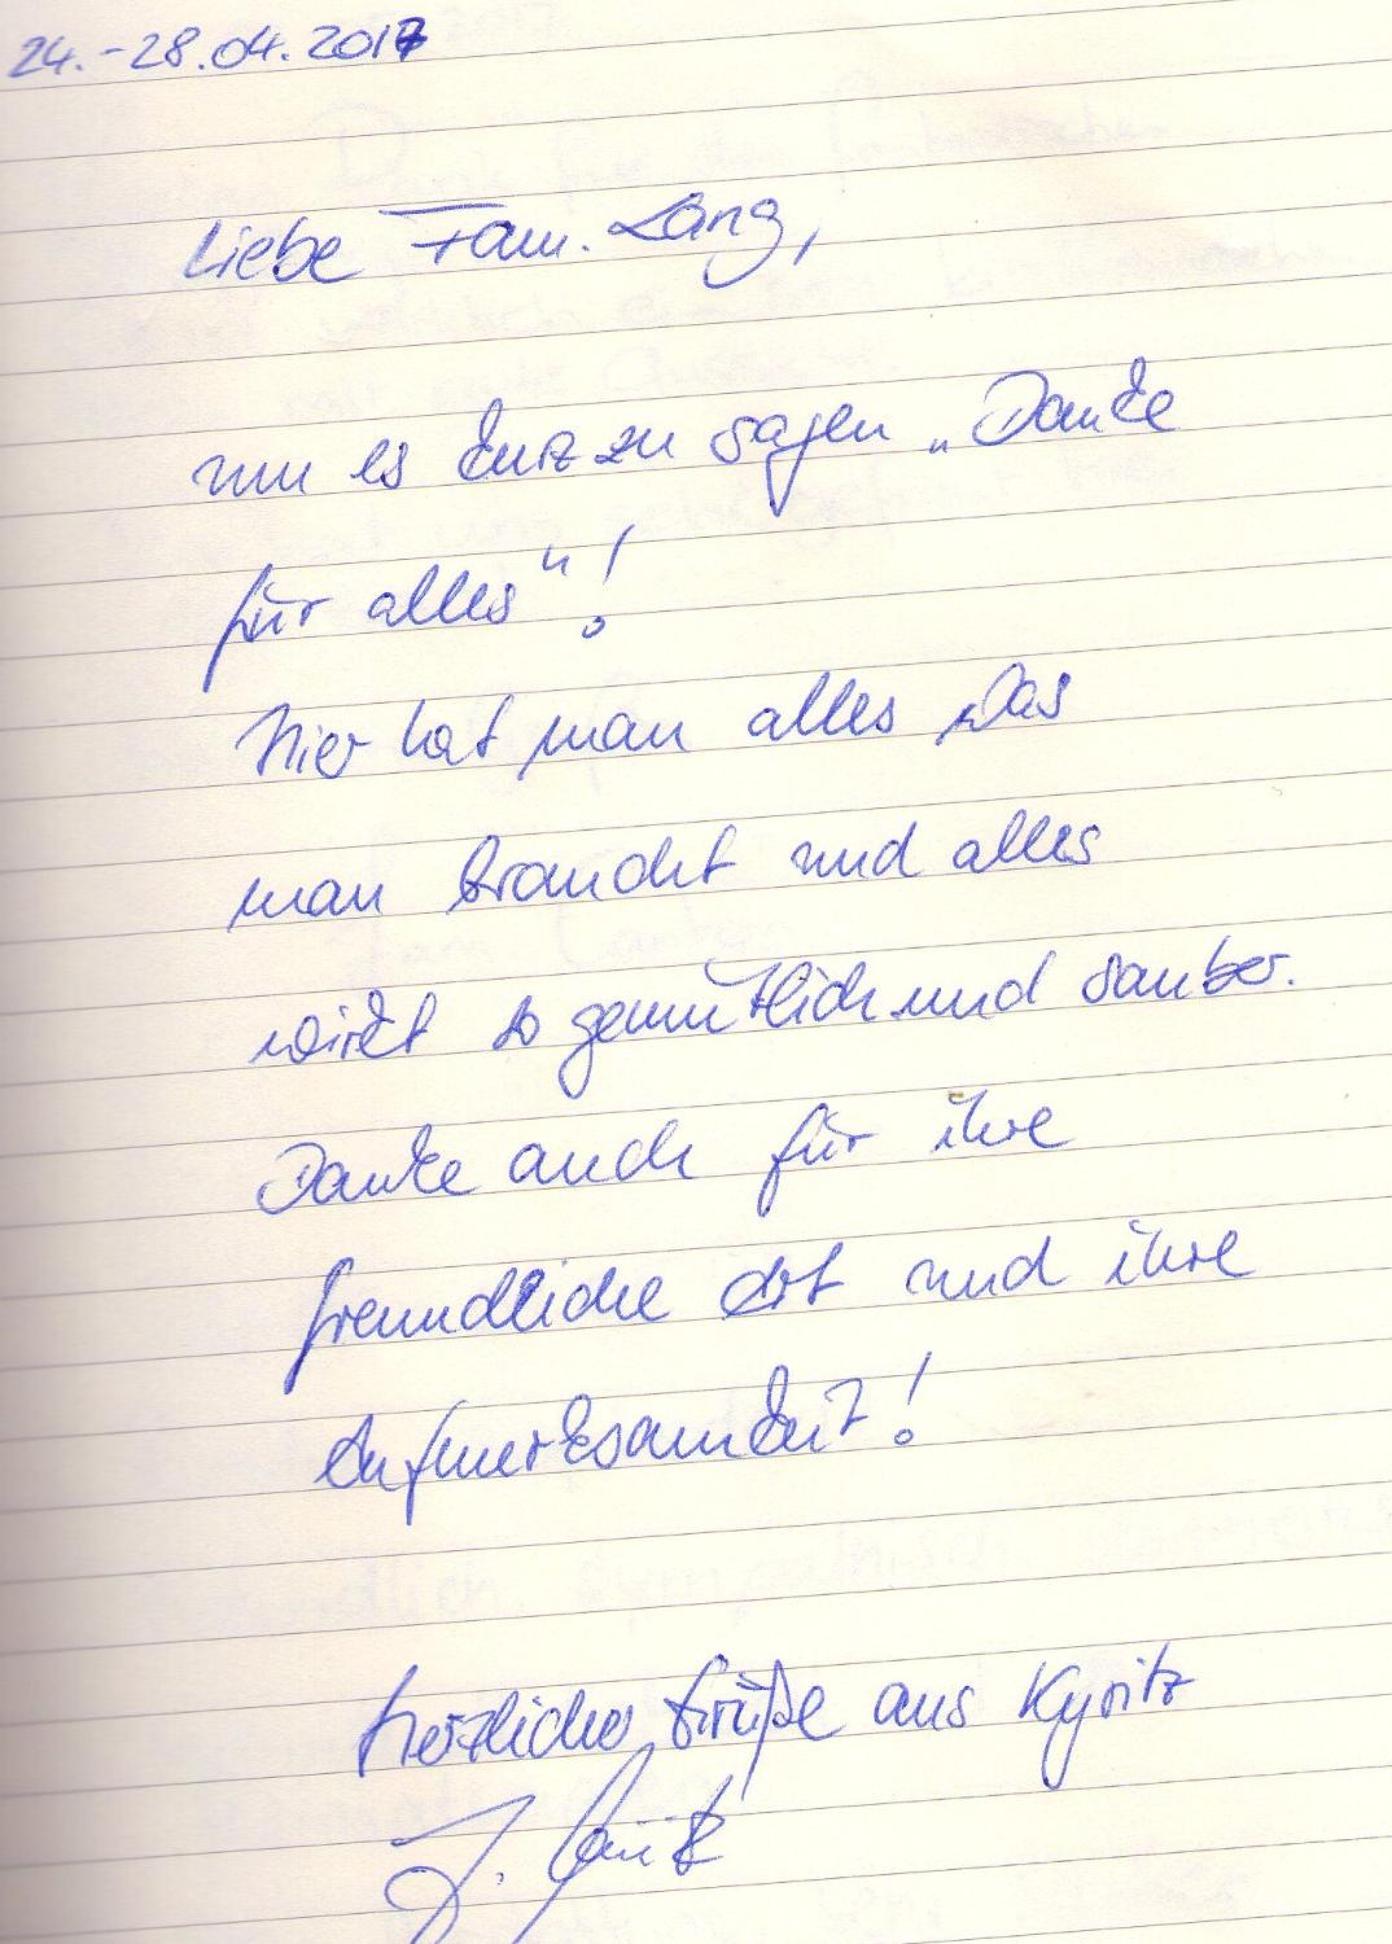 24.-28.04.2017
Liebe Fam. Lang,
um es kurz zu sagen „Danke
für alles"!
Hier hat man alles was
man braucht und alles
wirkt so gemütlich und sauber.
Danke auch für ihre
freundliche Art und ihre
Aufmerksamkeit!
Herzliche Grüße aus Kyritz
J.